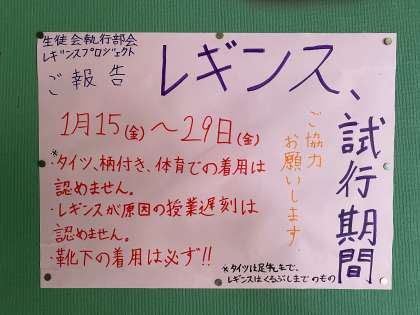 生徒会執行部会
レギンスプロジェクト
ご報告
レギンス、
試行期間
1月15(金)～29日(金)
ご協力
お願いします
*・タイツ、柄付き、体育での着用は
認めません。
・レギンスが原因の授業遅刻は
認めません。
・靴下の着用は必ず!!
*タイツは足先まで、
レギンスはくるぶしまでのもの